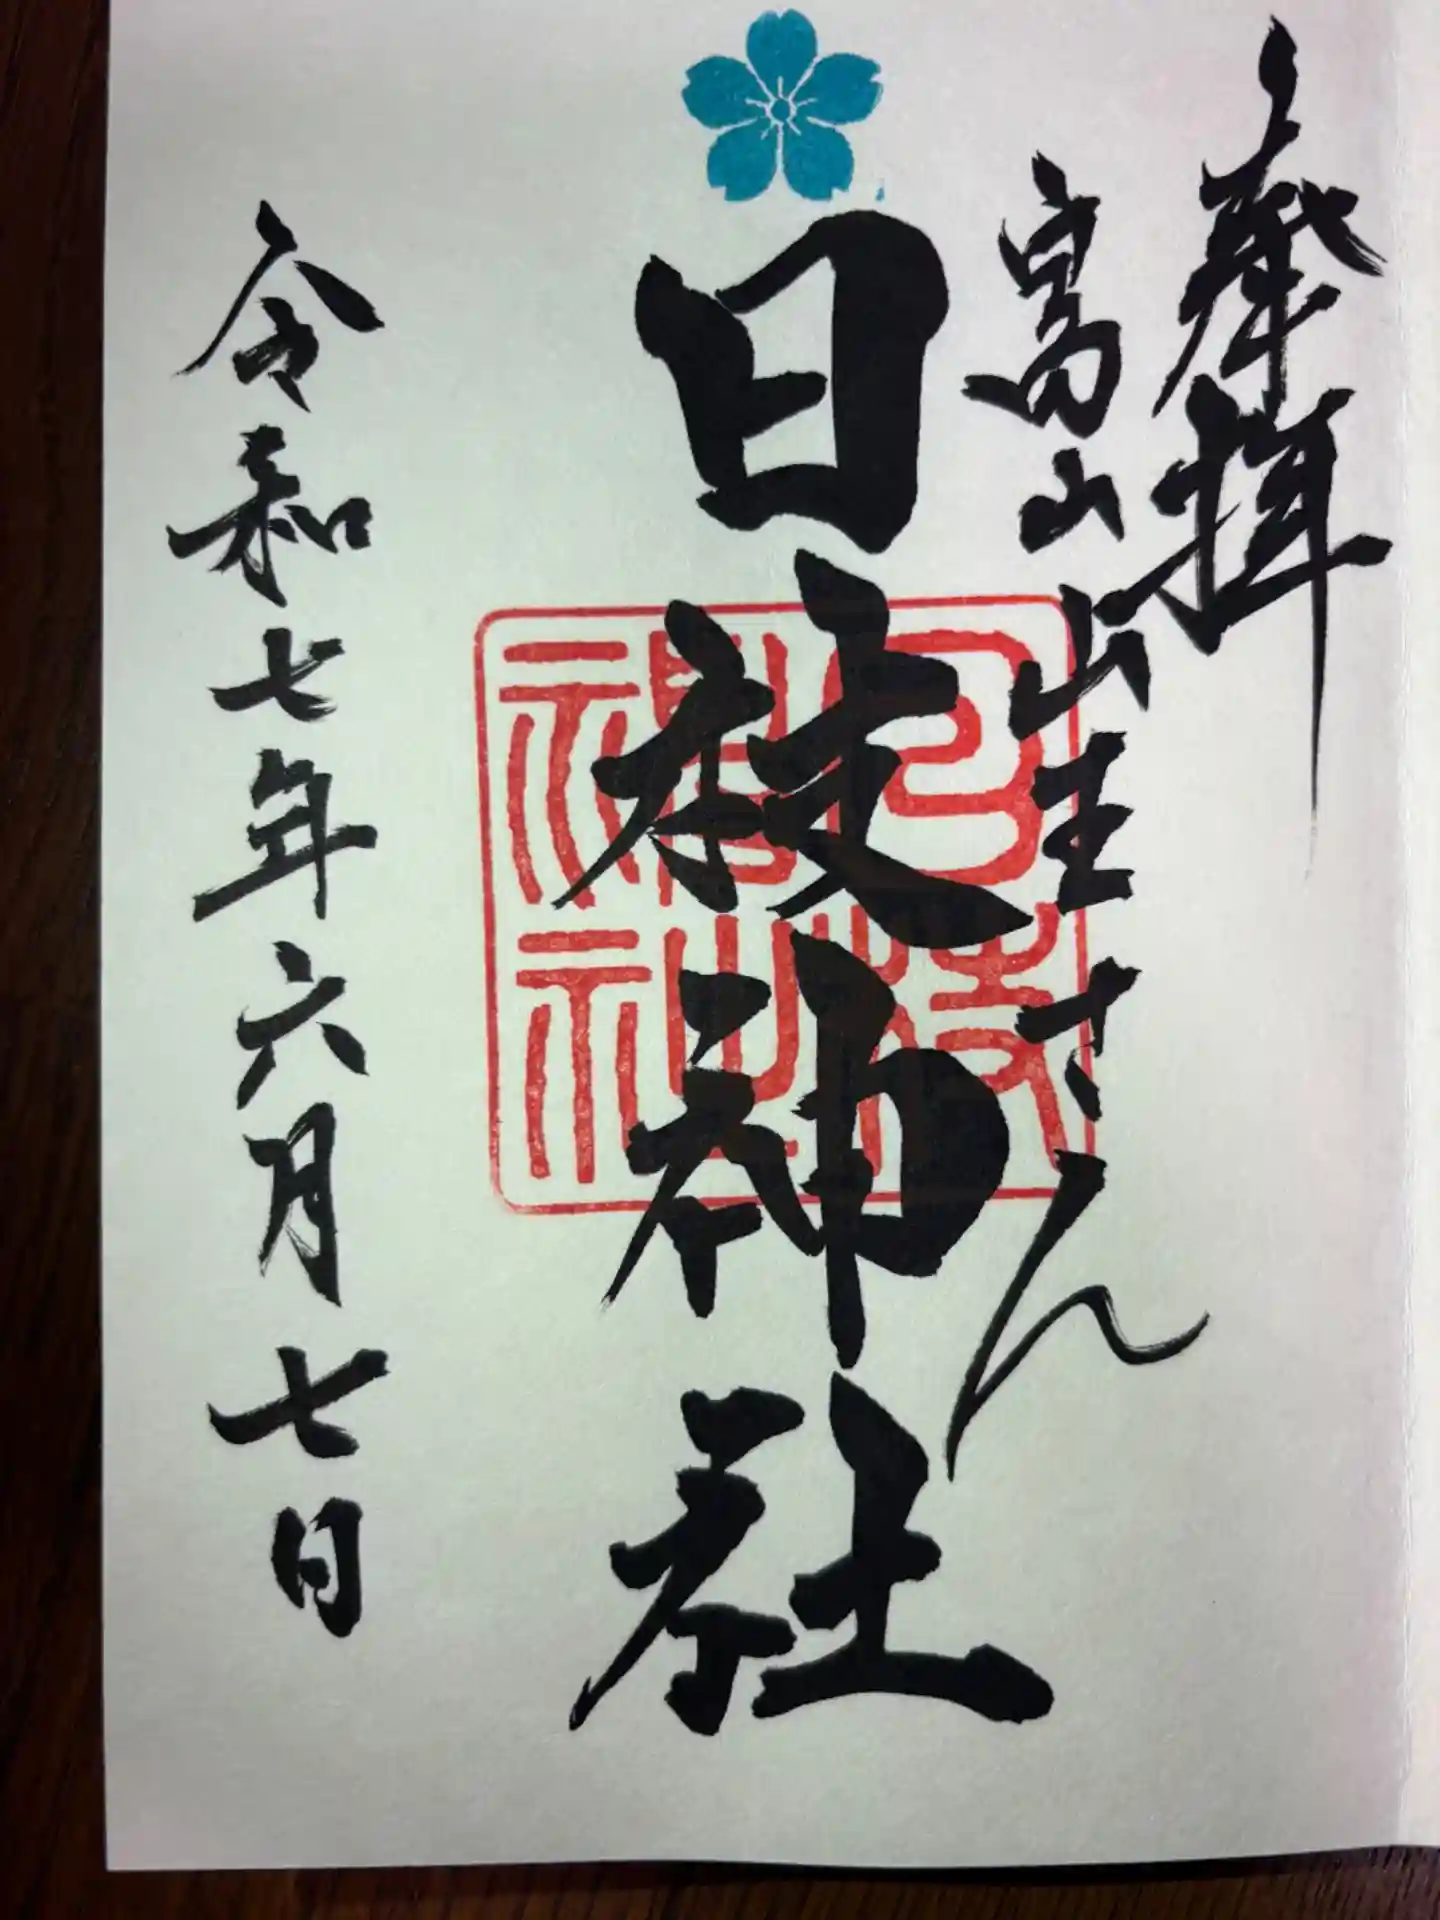 奉拝
富山山王さん
日枝神社
日枝神社
令和七年六月七日